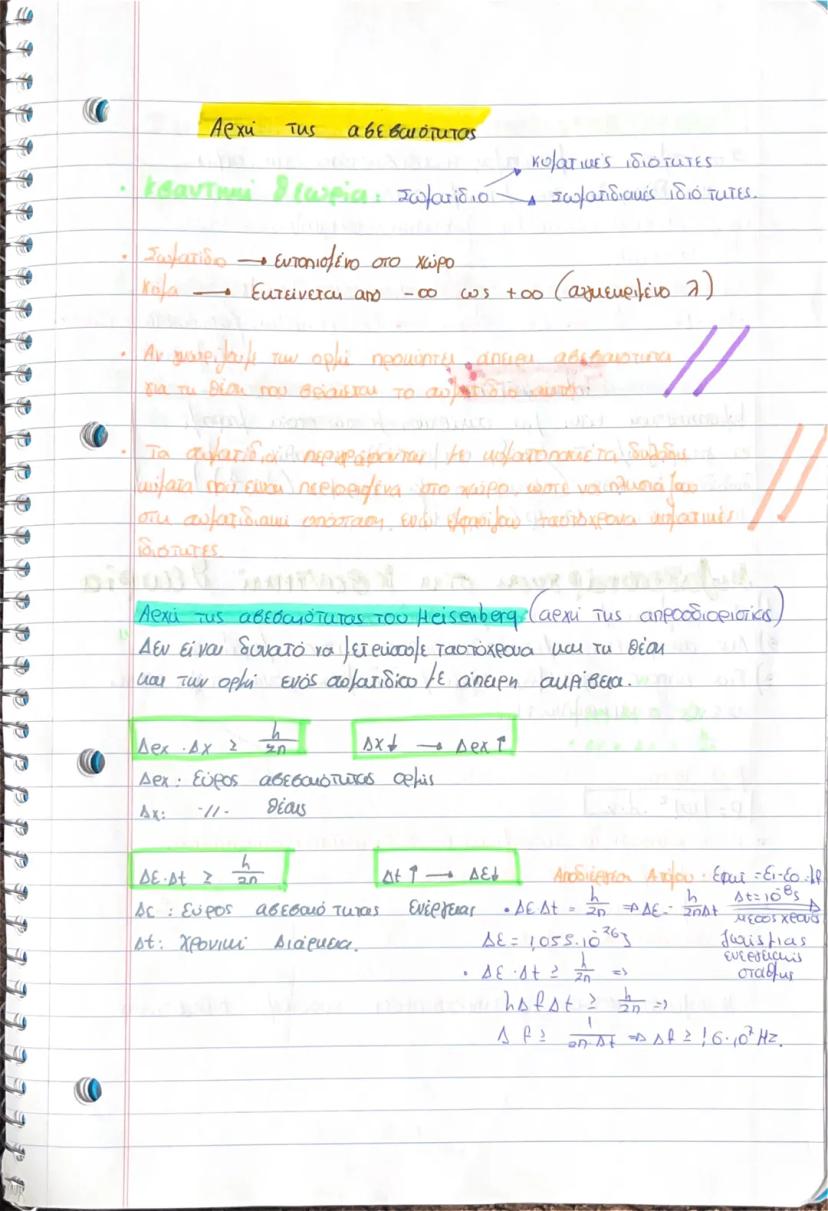 Αρχή της αβεβαιότητας
κυματικές ιδιότητες
• Κβαντική θεωρία: Σωματίδιο
σωματιδιακές ιδιότητες.
• Σωματίδιο → εντοπισμένο στο χώρο
Κύμα → Εκτείνεται από -∞ ως +∞ (συγκεκριμένο λ)
• Αν γνωρίζουμε την ορμή προκύπτει άπειρη αβεβαιότητα
για τη θέση που βρίσκεται το σωματίδιο αυτό.
• Τα σωματίδια περιγράφονται με κυματοπακέτα δηλαδή
κύματα που είναι περιορισμένα στο χώρο, ώστε να πλησιάζουν
στη σωματιδιακή υπόσταση, ενώ εμφανίζουν ταυτόχρονα κυματικές
ιδιότητες.
Αρχή της αβεβαιότητας του Heisenberg (αρχή της απροσδιοριστίας)
Δεν είναι δυνατό να μετρήσουμε ταυτόχρονα και τη θέση
και την ορμή ενός σωματιδίου με άπειρη ακρίβεια.
Δpx · Δx ≥ h/2π Δx↓ → Δpx ↑
Δpx: Εύρος αβεβαιότητας ορμής
Δx: -//- θέσης
ΔE·Δt ≥ h/2π Δt ↑ → ΔE↓ Αποδιέγερση Ατόμου: Εφωτ = Ει-Εο
Δε: Εύρος αβεβαιότητας ενέργειας • ΔE Δt = h/2π ⇒ ΔE = h/2πΔt Δt=10⁻⁸s
μέσος χρόνος
Δt: Χρονική Διάρκεια. ΔE = 1,055·10⁻²⁶J ζωής μιας
ενεργειακής
• ΔE·Δt ≥ h/2π ⇒ στάθμης
hΔf Δt ≥ h/2π ⇒
Δf ≥ 1/2π·Δt ⇒ Δf ≥ 1,6·10⁷Hz.